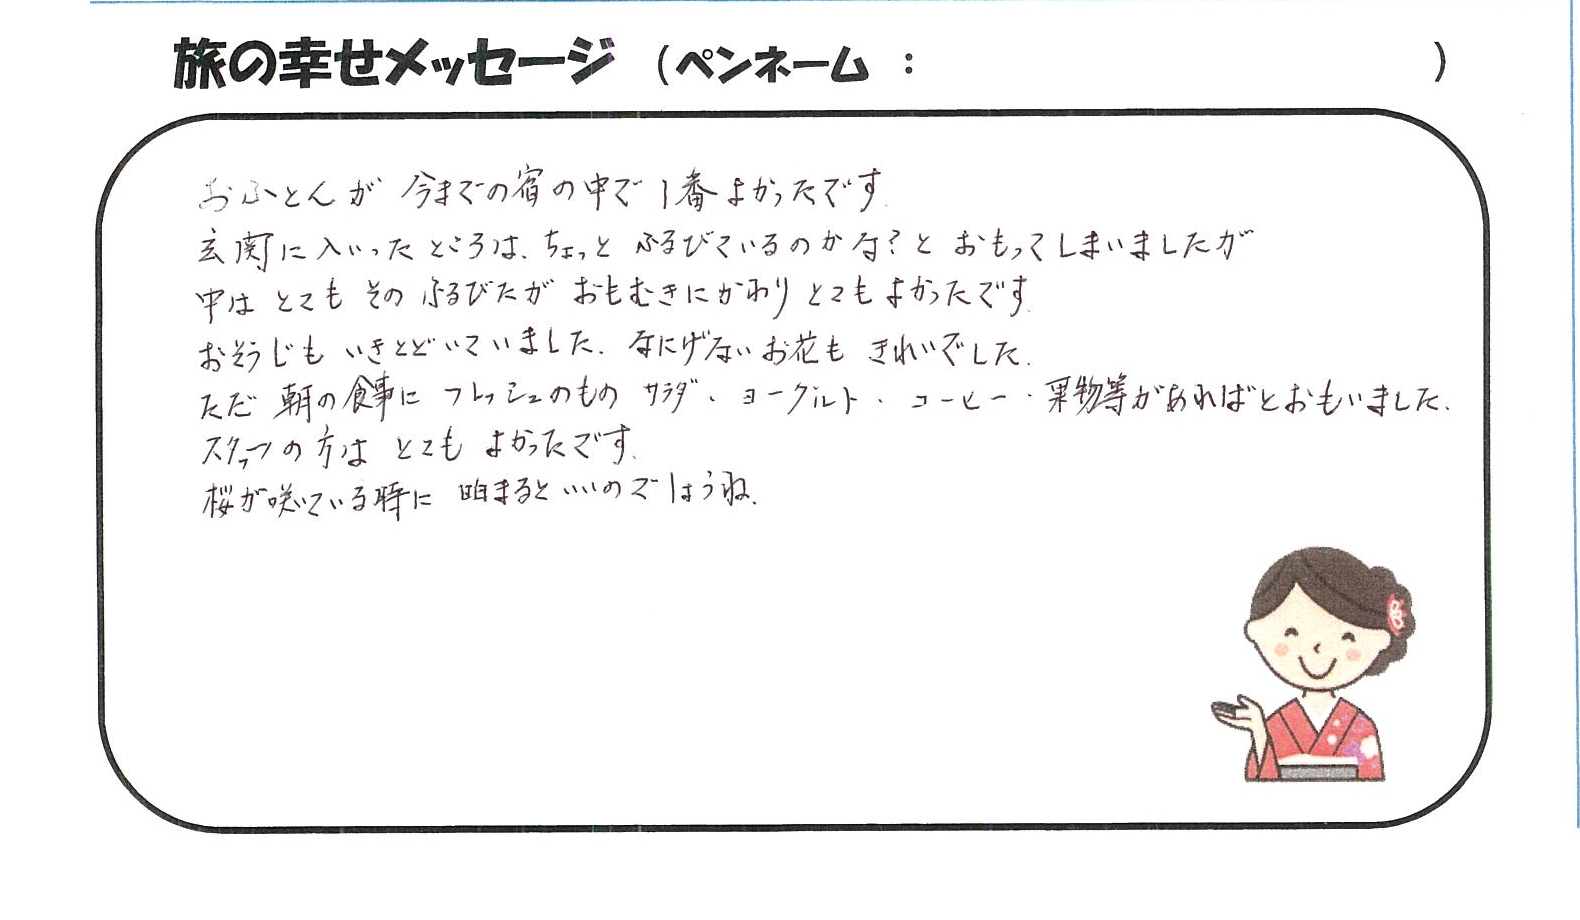 旅の幸せメッセージ （ペンネーム ： ）
おふとんが 今までの宿の中で 1番よかったです.
玄関に入いったところは、ちょっと ふるびているのかな?と おもってしまいましたが
中は とても その ふるびたが おもむきにかわり とてもよかったです.
おそうじも いきとどいていました. なにげないお花も きれいでした.
ただ 朝の食事に フレッシュのもの サラダ・ヨーグルト・コーヒー・果物等があればとおもいました.
スタッフの方は とても よかったです.
桜が咲いている時に 泊まるといいのでしょうね.